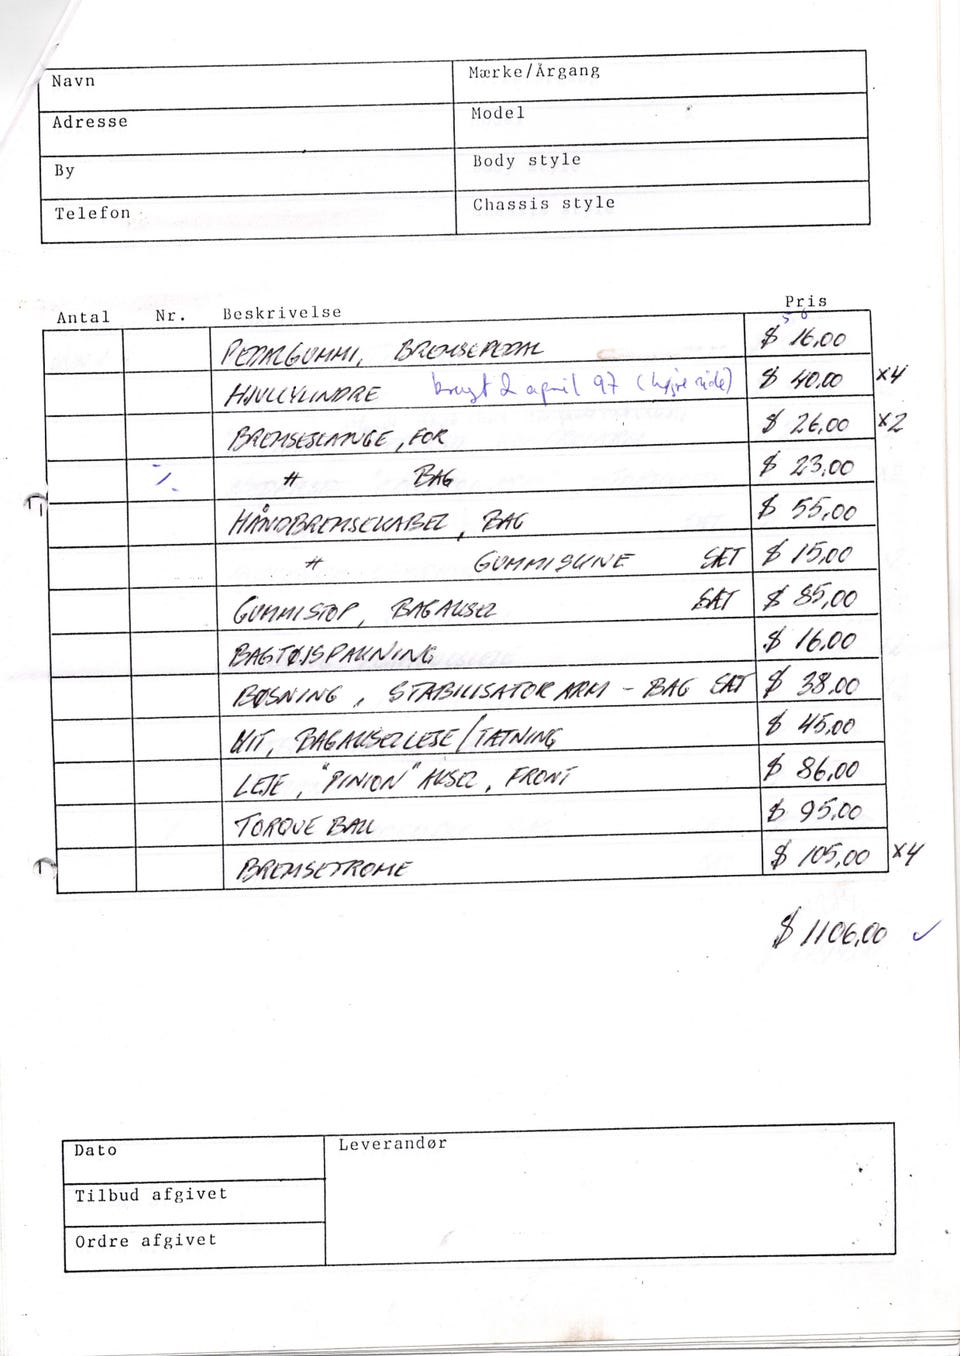 Navn
Mærke/Årgang
Adresse
Model
By
Body style
Telefon
Chassis style
Antal Nr. Beskrivelse Pris
PEDALGUMMI, BREMSEPEDAL $ 16,00
HJULCYLINDRE brugt 2 april 97 (højre side) $ 40,00 x4
BREMSESLANGE, FOR $ 26,00 x2
" BAG $ 23,00
HÅNDBREMSEKABEL, BAG $ 55,00
" GUMMISKIVE SÆT $ 15,00
GUMMISTOP, BAGAKSEL SÆT $ 85,00
BAGTØJSPAKNING $ 16,00
BØSNING, STABILISATOR ARM - BAG SÆT $ 38,00
KIT, BAGAKSELLEJE/TÆTNING $ 45,00
LEJE, "PINION" AKSEL, FRONT $ 86,00
TORQUE BALL $ 95,00
BREMSETROMLE $ 105,00 x4
$ 1106,00 ✓
Dato
Leverandør
Tilbud afgivet
Ordre afgivet